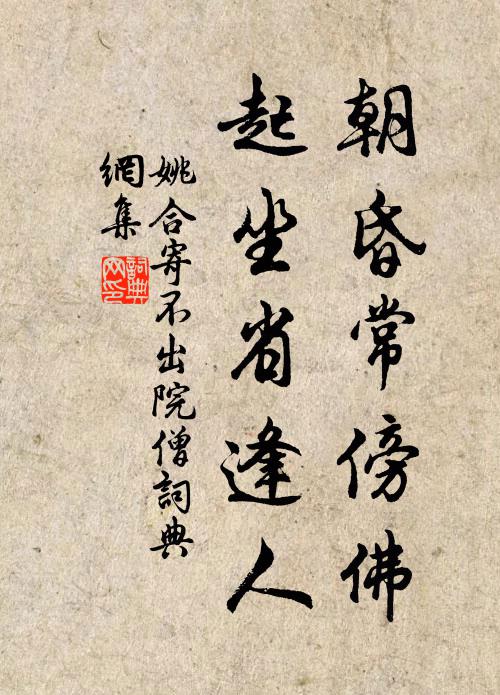 朝昏常傍佛
起坐省逢人
姚合寄不出院僧詞典
網集
詞典
网印